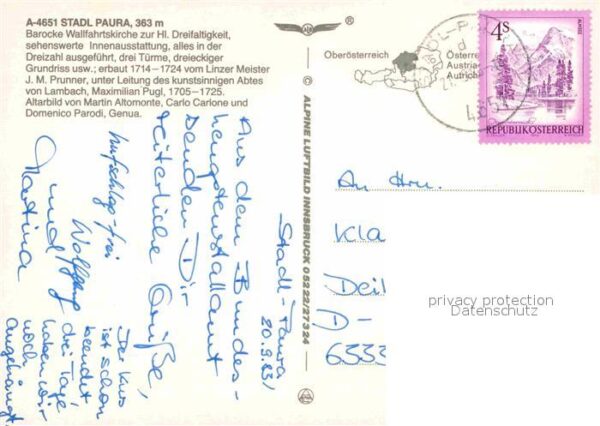 A-4651 STADL PAURA, 363 m
Barocke Wallfahrtskirche zur Hl. Dreifaltigkeit,
sehenswerte Innenausstattung, alles in der
Dreizahl ausgeführt, drei Türme, dreieckiger
Grundriss usw.; erbaut 1714–1724 vom Linzer Meister
J. M. Prunner, unter Leitung des kunstsinnigen Abtes
von Lambach, Maximilian Pugl, 1705–1725.
Altarbild von Martin Altomonte, Carlo Carlone und
Domenico Parodi, Genua.
Stadl-Paura
20.9.83
Aus dem Bundes-
hengstenstallamt
senden Dir
reiterliche Grüße,
hufschlag-frei
Wolfgang
und
Martina
Der Kurs
ist schon
beendet
drei Tage
haben wir
noch
angehängt
© ALPINE LUFTBILD INNSBRUCK 05222/27324
Oberösterreich
Österreich
Austria
Autriche
4S
REPUBLIK ÖSTERREICH
An Hrn.
Kla
Deil
D-
6333
privacy protection
Datenschutz